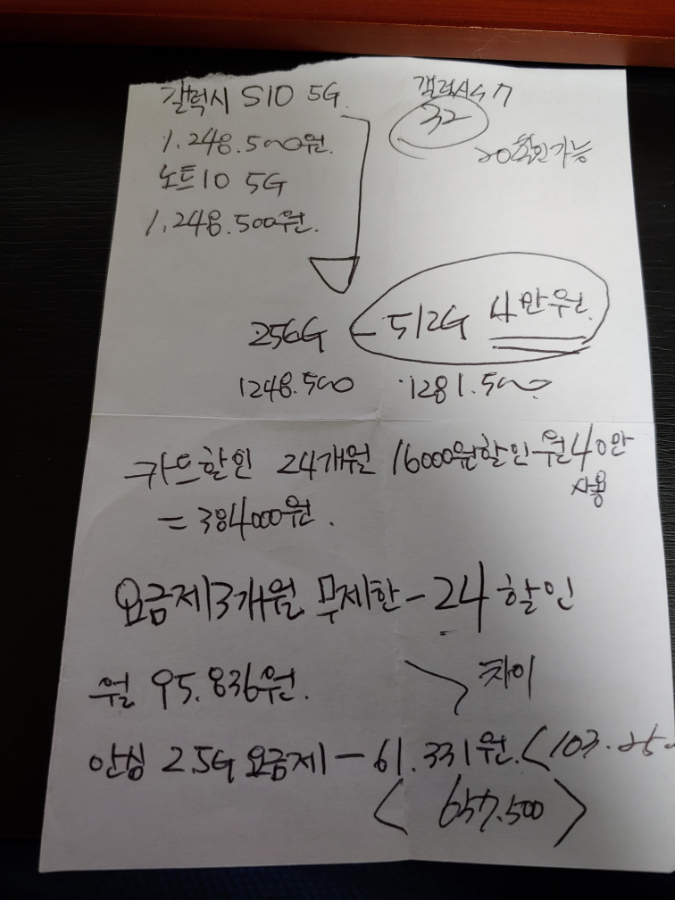 갤럭시 S10 5G
1,248.500원.
노트10 5G
1,248.500원.
갤럭시S7
32
20할인가능
256G - 512G 4만원.
1248.500 1281.500
카드할인 24개월 16000원할인 월40만
사용
= 384000원.
요금제3개월 무제한-24할인
월 95.836원. 차이
안심 2.5G 요금제 - 61.331원. <103.25
< 657.500 >